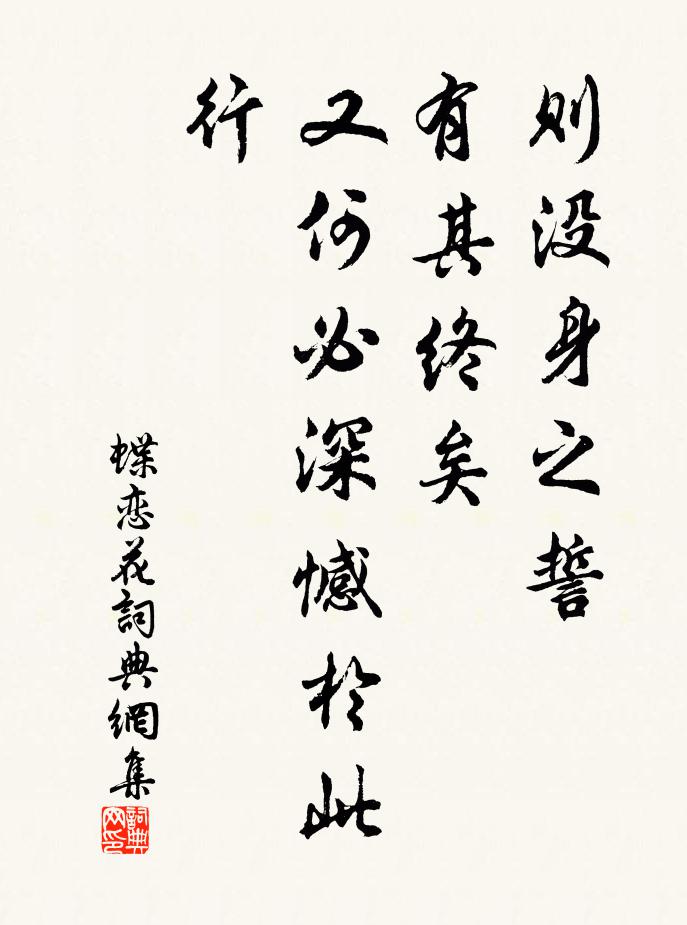 则没身之誓
有其终矣
又何必深憾於此
行
蝶恋花詞典網集
詞典网印